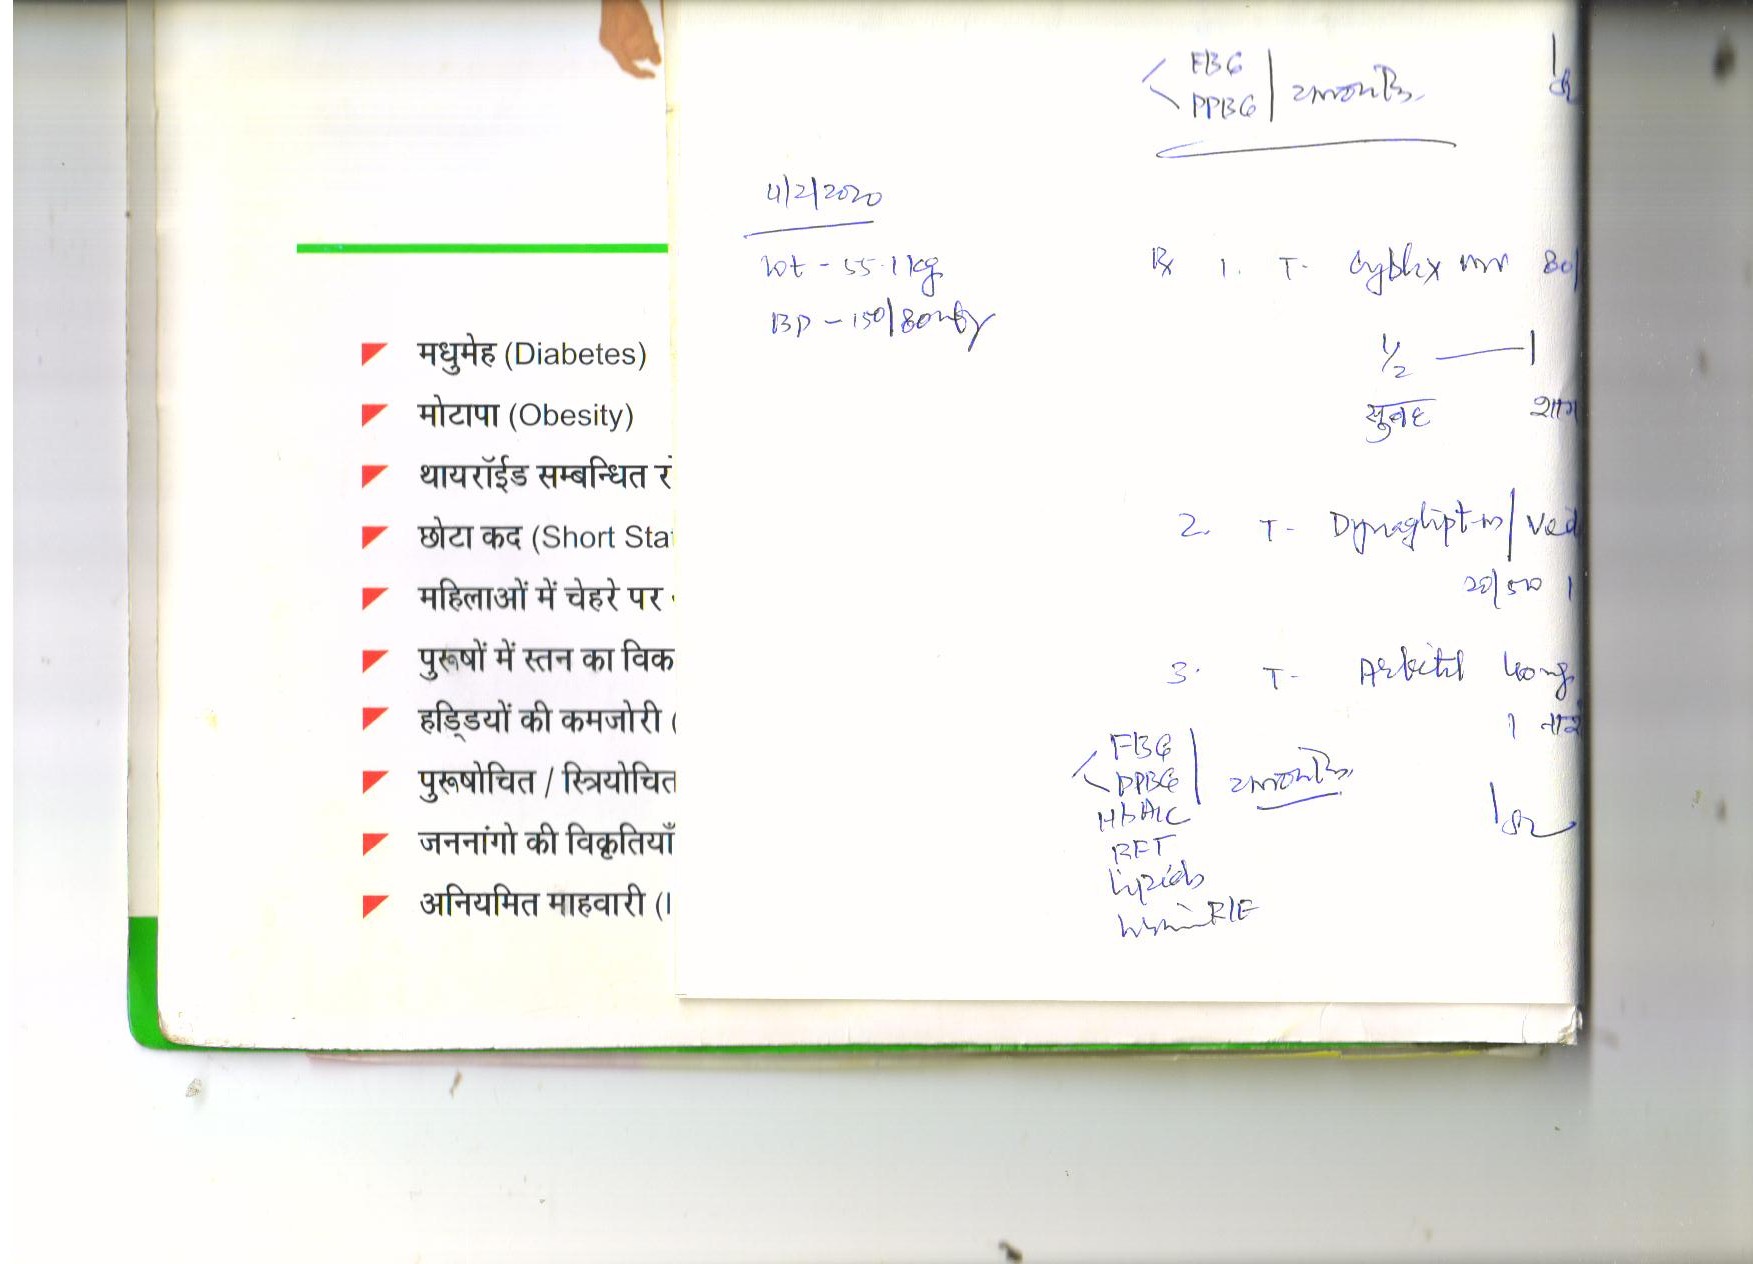 मधुमेह (Diabetes)
मोटापा (Obesity)
थायरॉईड सम्बन्धित
छोटा कद (Short Sta
महिलाओं में चेहरे पर
पुरूषों में स्तन का विक
हड्डियों की कमजोरी (
पुरूषोचित / स्त्रियोचित
जननांगो की विकृतियाँ
अनियमित माहवारी (I
FBG
PPBG
2months
4/2/2020
wt - 55.1kg
BP - 150/80
Rx 1. T-
80/
1/2 — 1
सुबह शाम
2. T- Dynaglipt-m/
20/500 1
3. T- Arbitel 40mg
1
FBG
PPBG
2months
HbA1C
RFT
Lipids
R/E